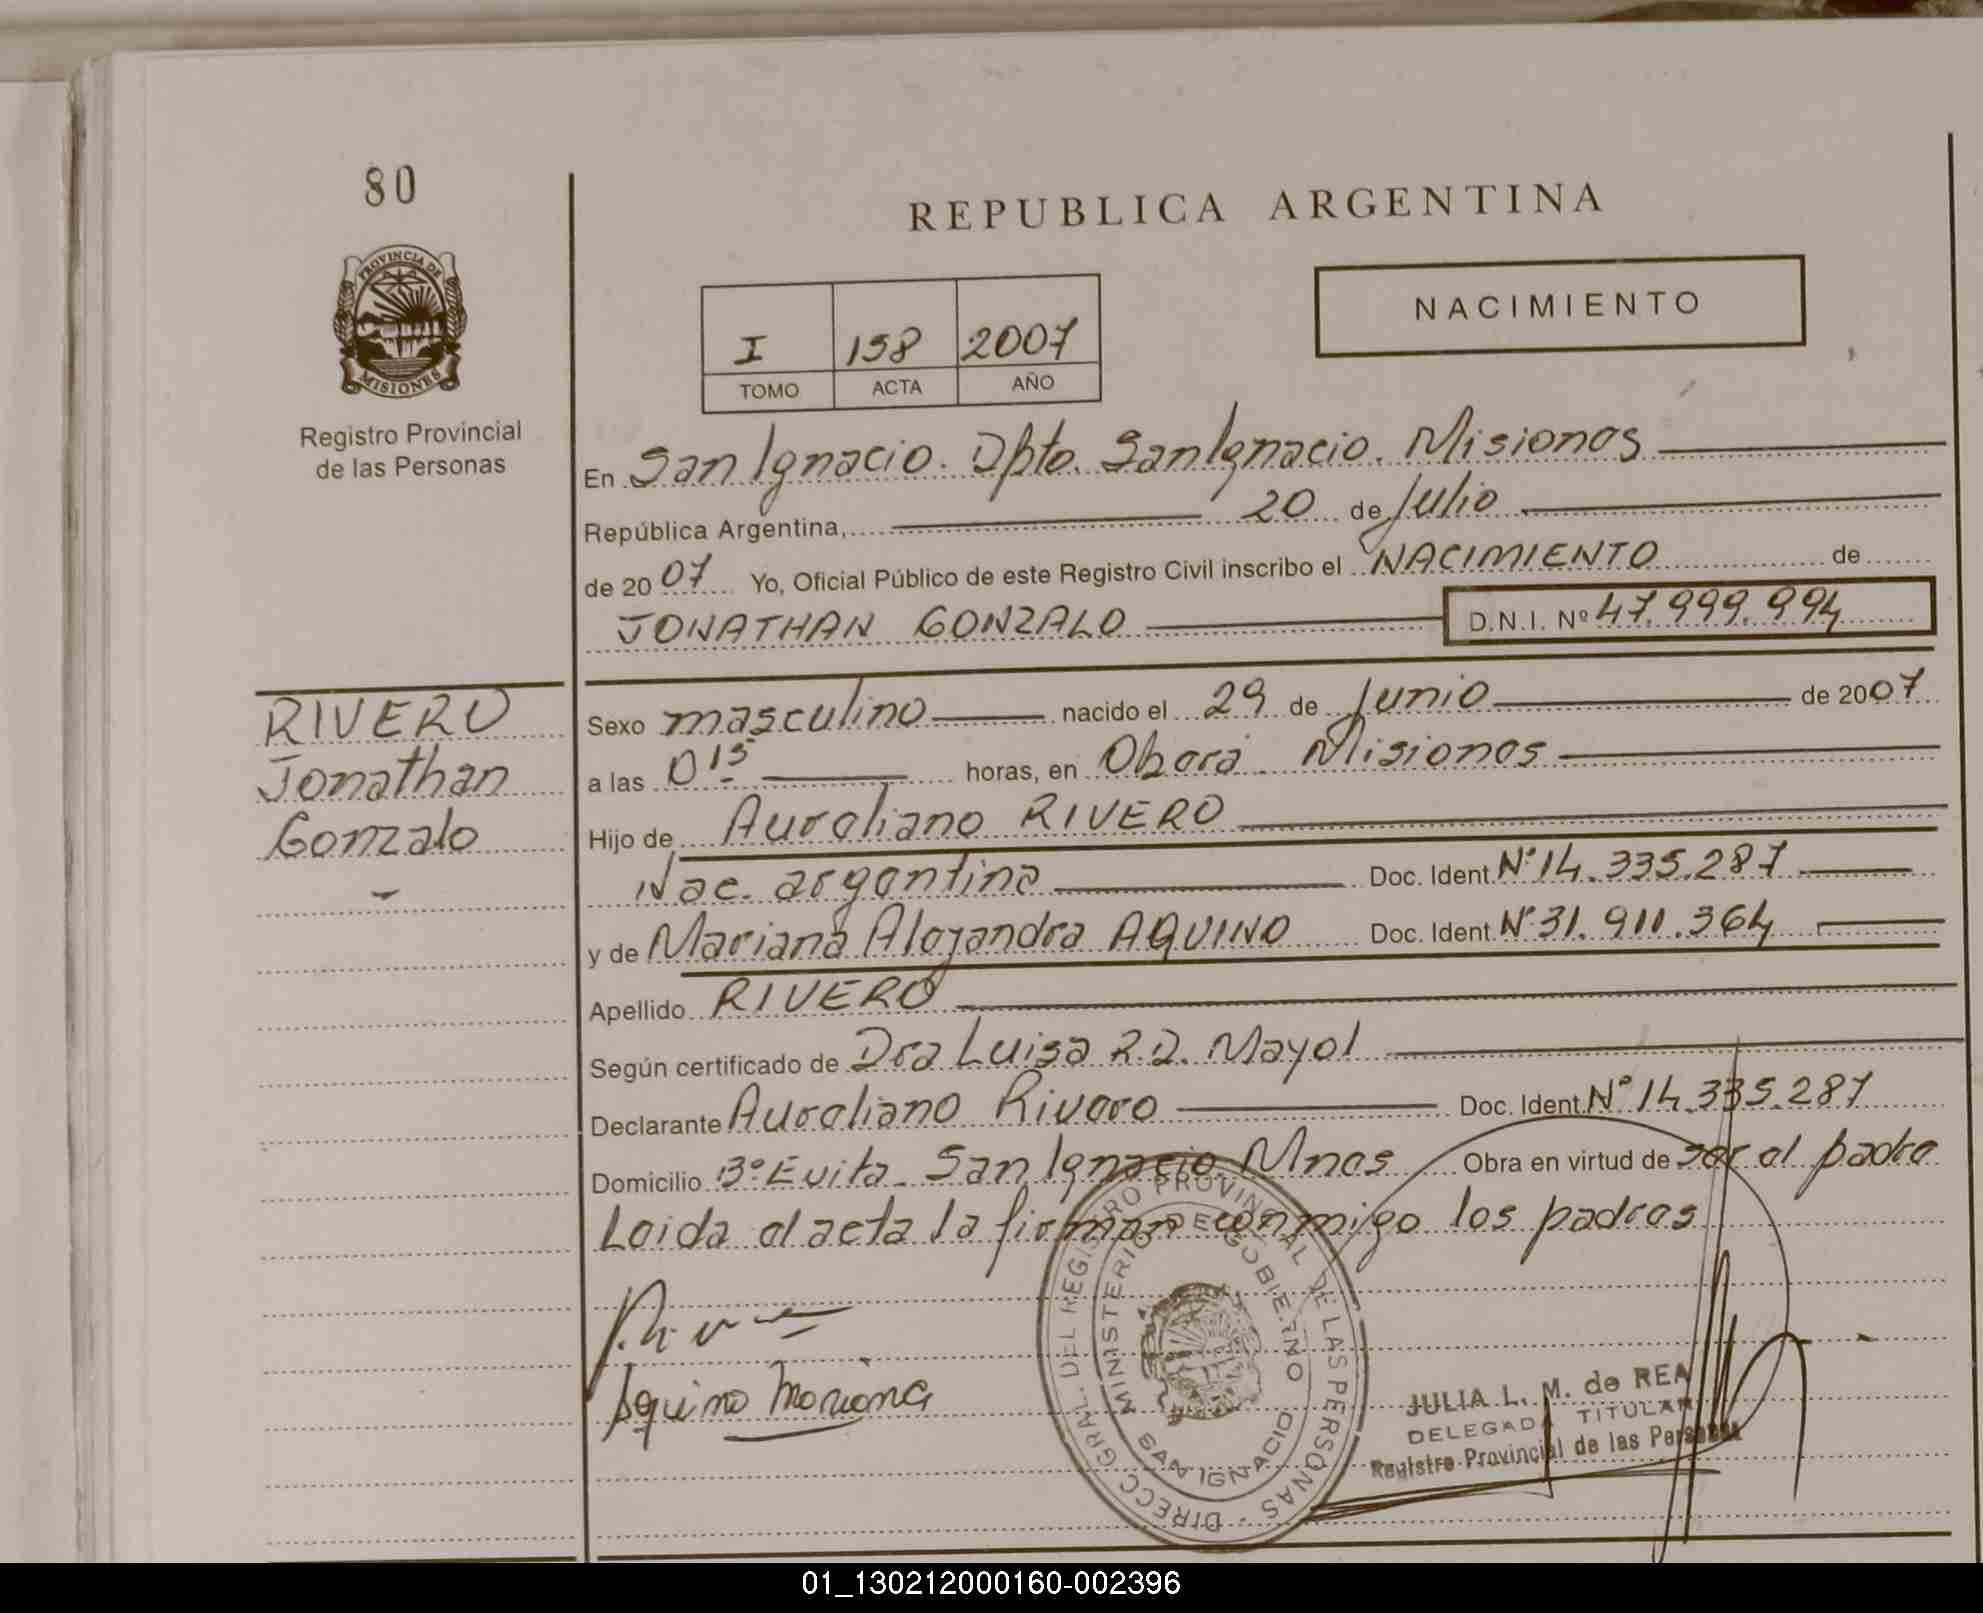 80
REPUBLICA ARGENTINA
PROVINCIA DE
MISIONES
NACIMIENTO
I 158 2007
TOMO ACTA AÑO
Registro Provincial
de las Personas
En San Ignacio. Dpto. San Ignacio. Misiones
República Argentina, 20 de Julio
de 2007 Yo, Oficial Público de este Registro Civil inscribo el NACIMIENTO de
JONATHAN GONZALO D.N.I. Nº 47.999.994
RIVERO
Jonathan
Gonzalo
Sexo masculino nacido el 29 de Junio de 2007
a las 0 15 horas, en Oberá Misiones
Hijo de Aureliano RIVERO
Nac. argentina Doc. Ident. Nº 14.335.287
y de Mariana Alejandra AQUINO Doc. Ident. Nº 31.911.364
Apellido RIVERO
Según certificado de Dra Luisa R.D. Mayol
Declarante Aureliano Rivero Doc. Ident. Nº 14.335.287
Domicilio Bº Evita San Ignacio Mnes Obra en virtud de ser el padre
Leida el acta la firman conmigo los padres
Aquino Mariana
DIRECC. GRAL. DEL REGISTRO PROVINCIAL DE LAS PERSONAS
MINISTERIO DE GOBIERNO
SAN IGNACIO
JULIA L. M. de REA
DELEGADA TITULAR
Registro Provincial de las Personas
01_130212000160-002396